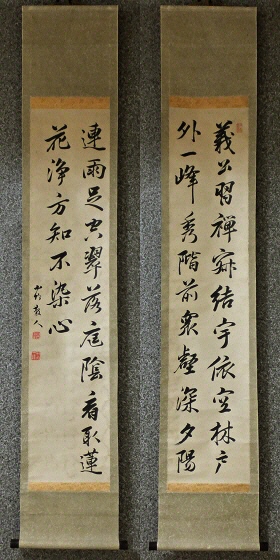 義公習禪寂結宇依空林戶
外一峰秀階前衆壑深夕陽
連雨足空翠落庭陰看取蓮
花浄方知不染心